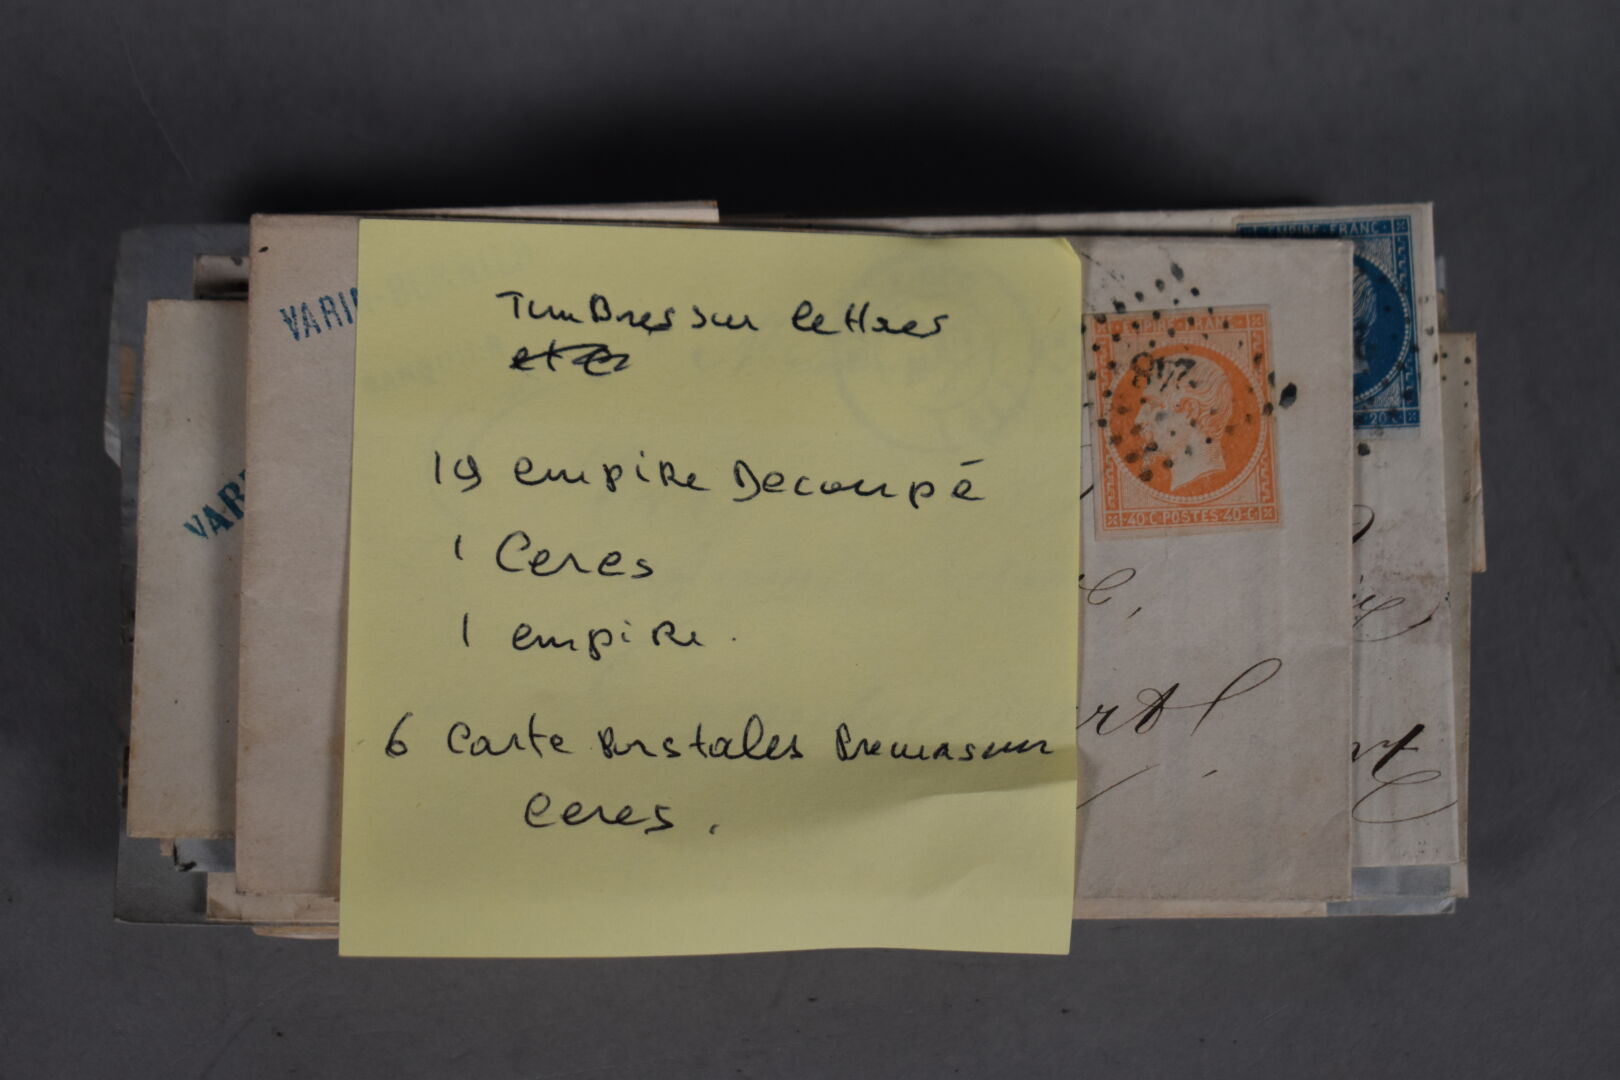 Timbres sur lettres
19 empire Decoupé
1 Ceres
1 empire.
6 Carte Postales
Ceres.
VARIN
VAR
EMPIRE·FRANC·
40·C·POSTES·40·C·
EMPIRE·FRANC·
20·C